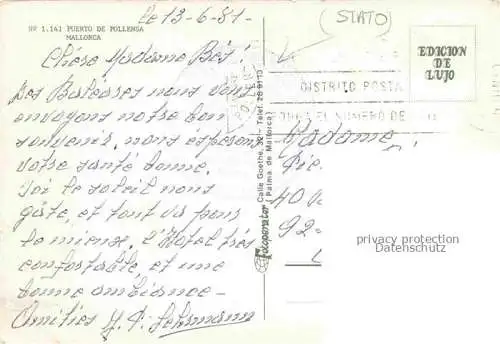 Le 13-6-81-
(STATO)
Nº 1.141 PUERTO DE POLLENSA
MALLORCA
Chère Madame
EDICION
DE
LUJO
DISTRITO POSTA
EL NUMERO DE
Des Baléares nous vous
envoyons notre bon
souvenir, nous espérons
votre santé bonne.
Ici le soleil nous
gâte, et tout va pour
le mieux. L'Hotel très
confortable, et une
bonne ambiance -
Amitiés
Fotoperator
Calle Goethe, 32 - Telef. 28 91 13
(Palma de Mallorca)
Madame
40
92-
privacy protection
Datenschutz